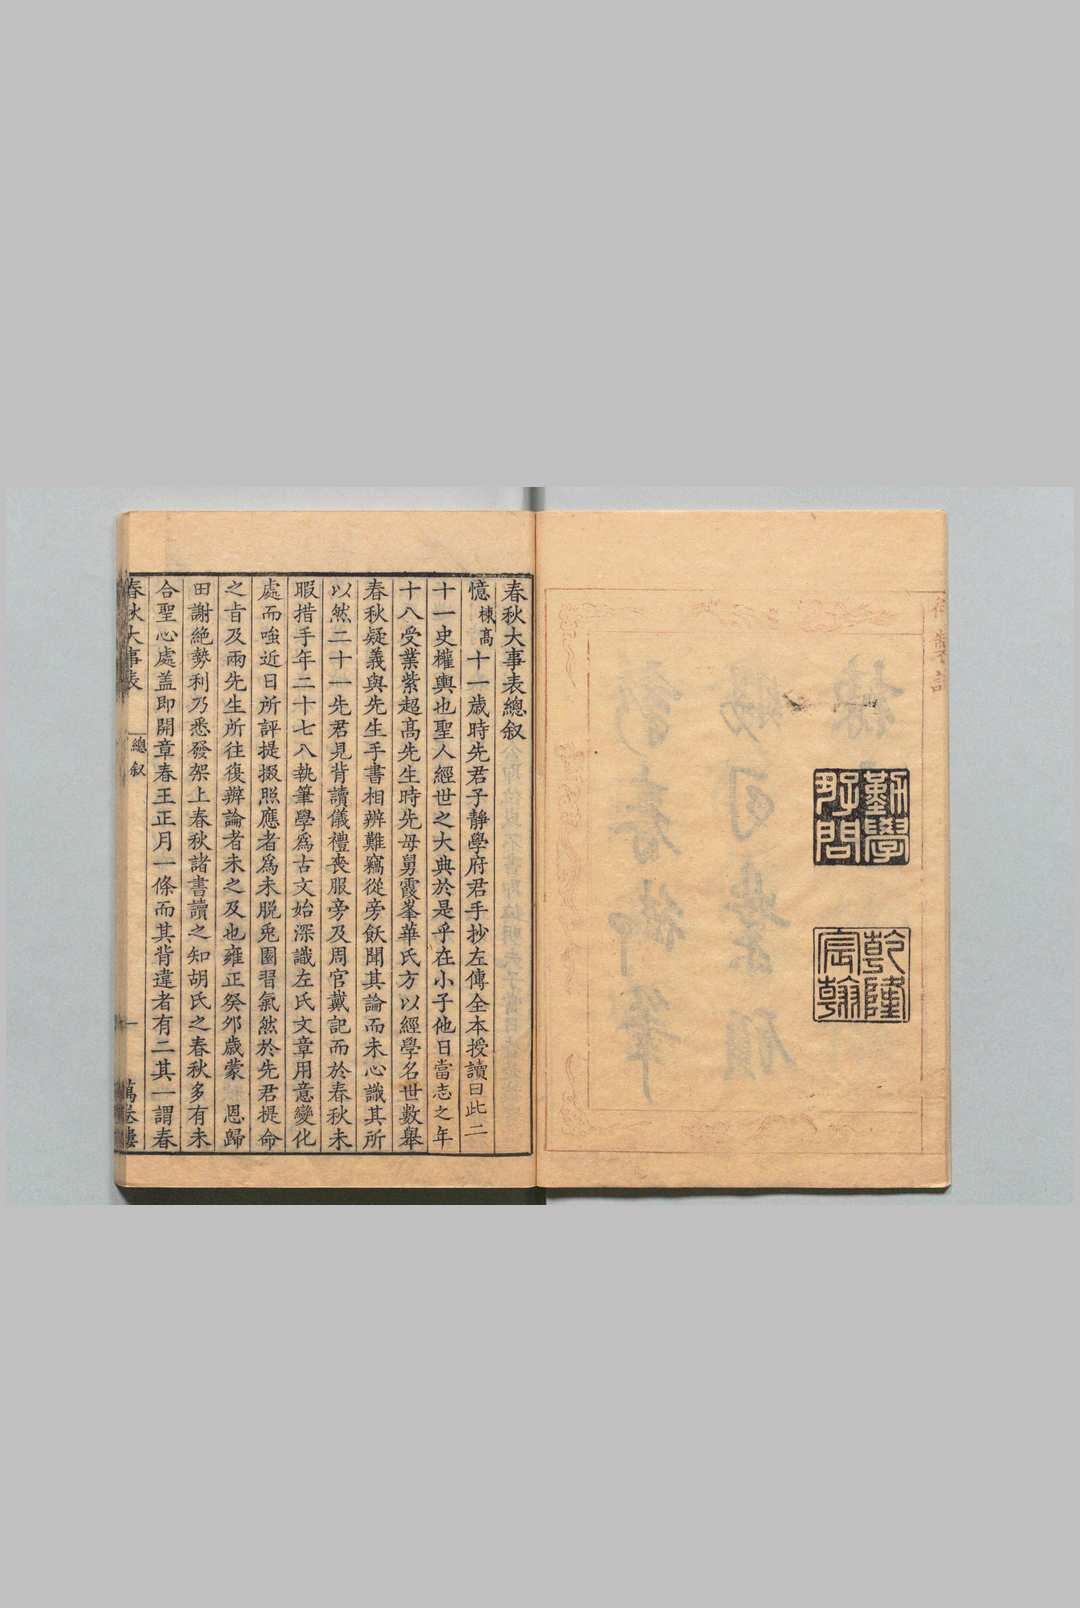 勤學
好問
乾隆
宸翰
春秋大事表總叙
憶棟高十一歲時先君子靜學府君手抄左傳全本授讀曰此二
十一史權輿也聖人經世之大典於是乎在小子他日當志之年
十八受業紫超高先生時先母舅霞峯華氏方以經學名世數舉
春秋疑義與先生手書相辨難竊從旁飫聞其論而未心識其所
以然二十一先君見背讀儀禮喪服旁及周官戴記而於春秋未
暇措手年二十七八執筆學爲古文始深識左氏文章用意變化
處而嗤近日所評提掇照應者爲未脱兎園習氣然於先君提命
之㫖及兩先生所往復辨論者未之及也雍正癸夘歲蒙 恩歸
田謝絶勢利乃悉發架上春秋諸書讀之知胡氏之春秋多有未
合聖心處盖即開章春王正月一條而其背違者有二其一謂春
春秋大事表 總叙 一 萬卷樓